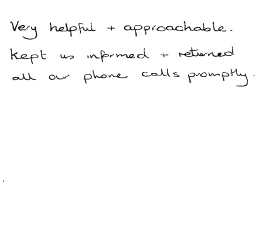 Very helpful + approachable.
Kept us informed + returned
all our phone calls promptly.